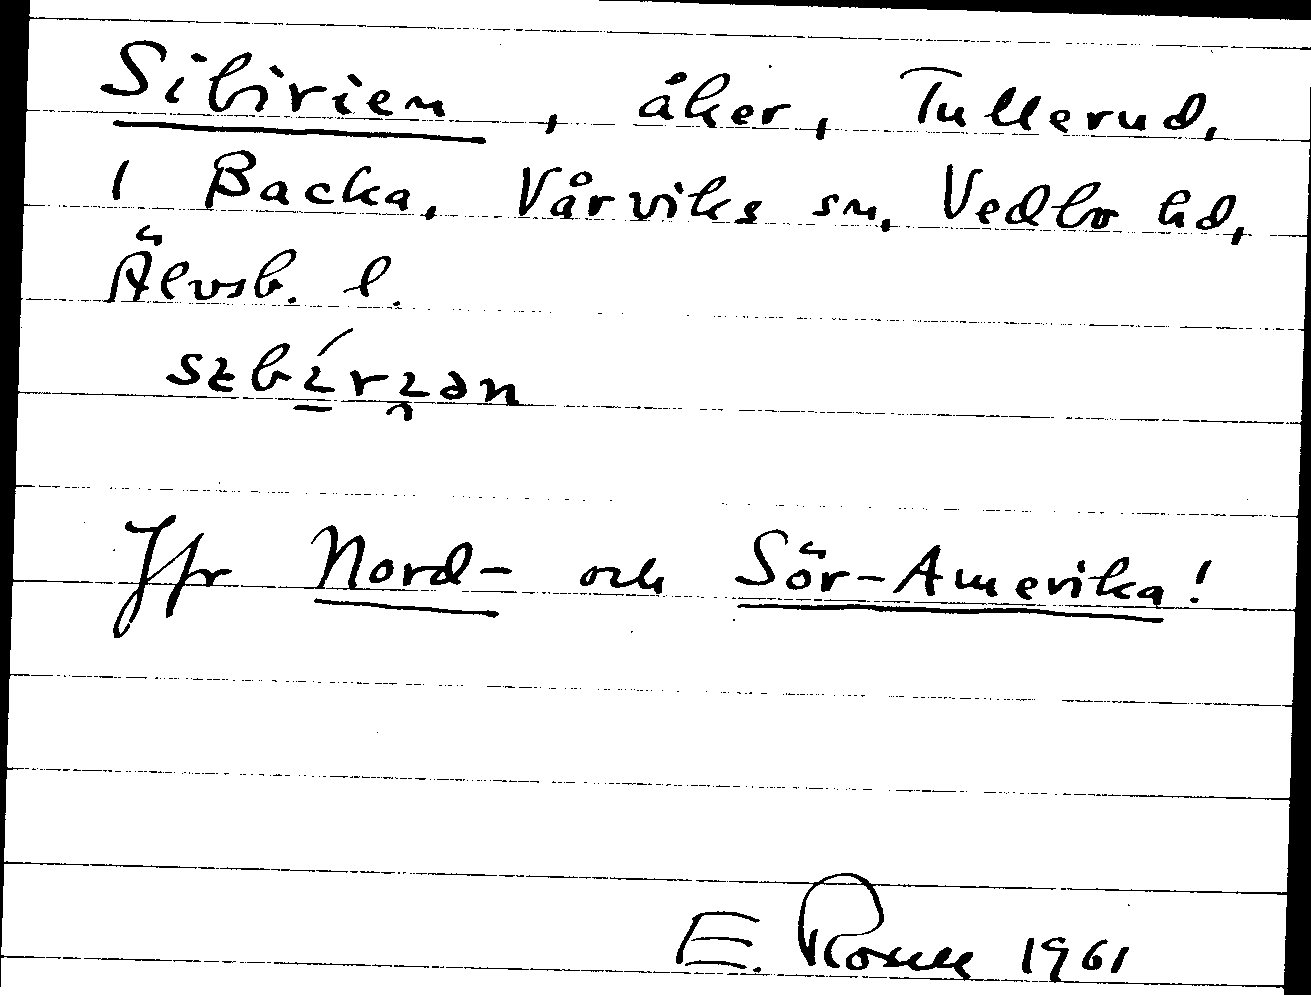 Sibirien, åker, Tullerud,
1 Backa, Vårviks sn, Vedbo hd,
Älvsb. l.
Jfr Nord- och Sör-Amerika!
E. Rosell 1961